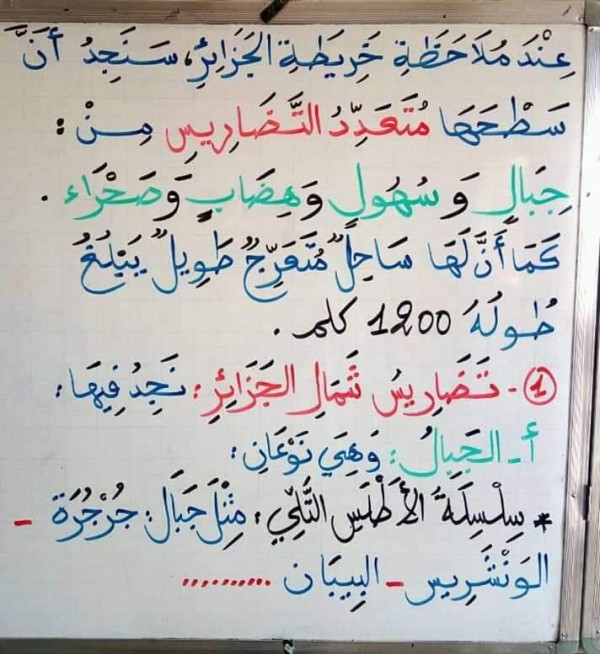 عِنْدَ مُلَاحَظَةِ خَرِيطَةِ الجَزَائِرِ، سَنَجِدُ أَنَّ
سَطْحَهَا مُتَعَدِّدُ التَّضَارِيسِ مِنْ :
جِبَالٍ وَ سُهُولٍ وَ هِضَابٍ وَ صَحْرَاء .
كَمَا أَنَّ لَهَا سَاحِلٌ مُتَعَرِّجٌ طَوِيلٌ يَبْلُغُ
طُولُهُ 1200 كلم .
1 - تَضَارِيسُ شَمَالِ الجَزَائِرِ : نَجِدُ فِيهَا :
أ - الجِبَالُ : وَهِيَ نَوْعَانِ :
* سِلْسِلَةُ الأَطْلَسِ التَّلِّي : مِثْلَ جَبَالِ : جُرْجُرَة -
الوَنْشَرِيس - البِيبَان ..........